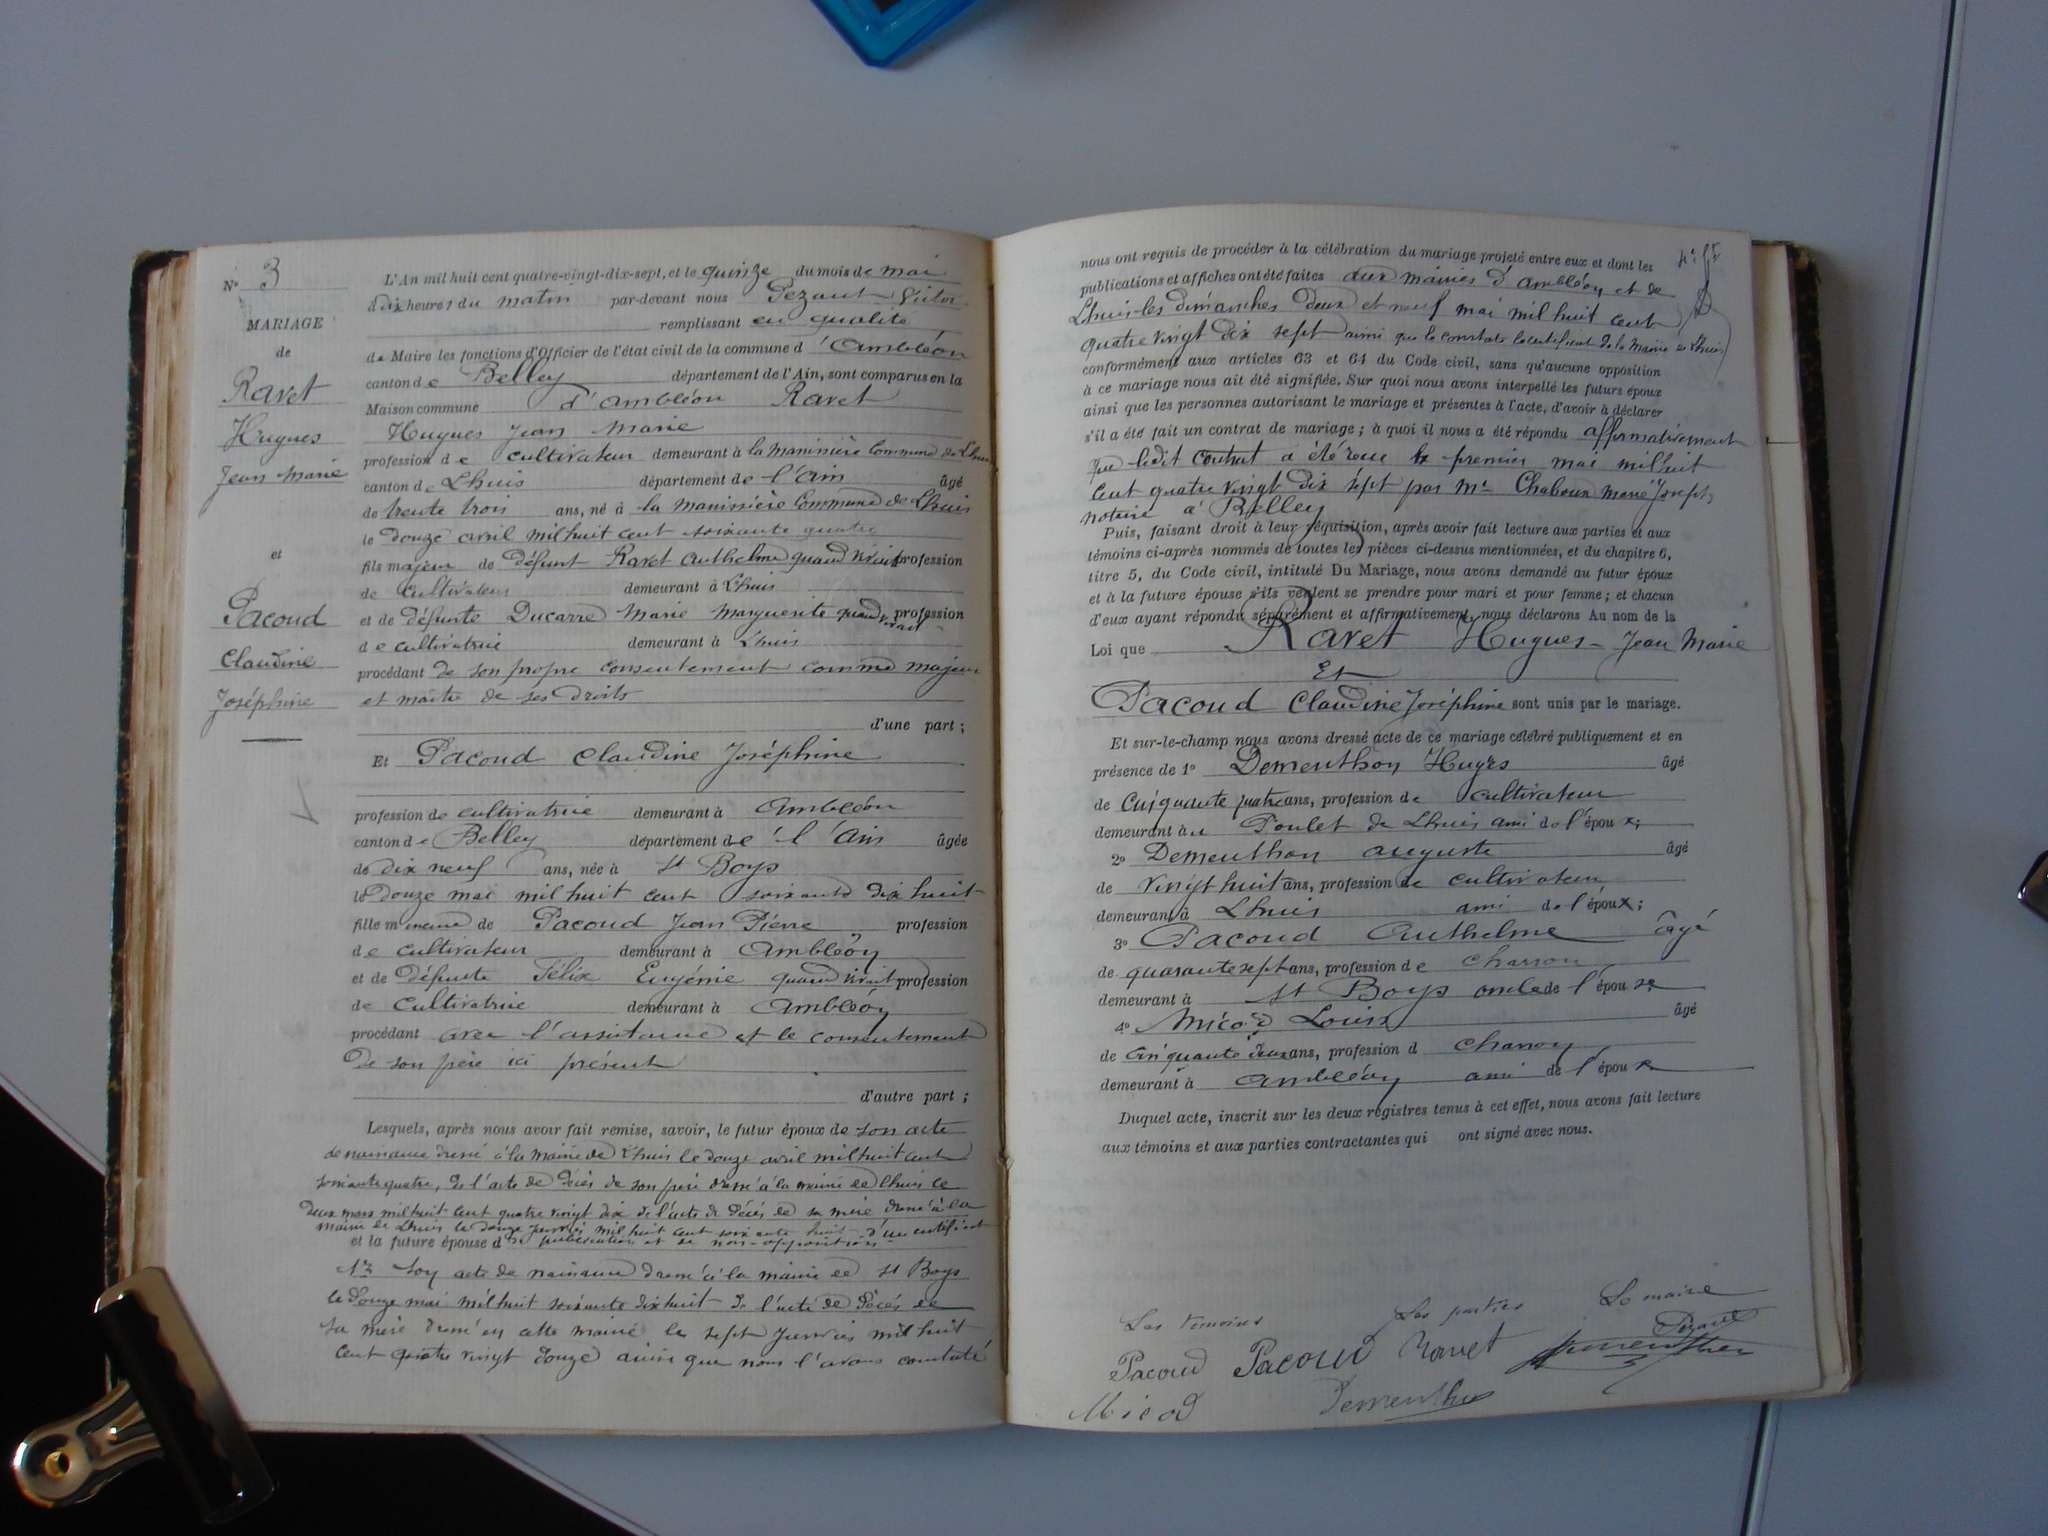 N° 3
MARIAGE
de
Ravet
Hugues
Jean Marie
et
Pacoud
Claudine
Joséphine
L'An mil huit cent quatre-vingt-dix-sept, et le quinze du mois de mai
à dix heures du matin par-devant nous Pezant Victor
remplissant en qualité
de Maire les fonctions d'Officier de l'état civil de la commune d'Ambléon
canton de Belley département de l'Ain, sont comparus en la
Maison commune d'Ambléon Ravet
Hugues Jean Marie
profession de cultivateur demeurant à la Maninière Commune de Lhuis
canton de Lhuis département de l'Ain âgé
de trente trois ans, né à la Maninière Commune de Lhuis
le douze avril mil huit cent soixante quatre
fils majeur de défunt Ravet Anthelme quand vivait profession
de cultivateur demeurant à Lhuis
et de défunte Ducarre Marie Marguerite quand vivait profession
de cultivatrice demeurant à Lhuis
procédant de son propre consentement comme majeur
et maître de ses droits
d'une part ;
Et Pacoud Claudine Joséphine
profession de cultivatrice demeurant à Ambléon
canton de Belley département de l'Ain âgée
de dix neuf ans, née à St Boys
le douze mai mil huit cent soixante dix huit
fille mineure de Pacoud Jean Pierre profession
de cultivateur demeurant à Ambléon
et de défunte Félix Eugénie quand vivait profession
de Cultivatrice demeurant à Ambléon
procédant avec l'assistance et le consentement
de son père ici présent
d'autre part ;
Lesquels, après nous avoir fait remise, savoir, le futur époux de son acte
de naissance dressé à la mairie de Lhuis le douze avril mil huit cent
soixante quatre, de l'acte de décès de son père dressé à la mairie de Lhuis le
deux mars mil huit cent quatre vingt dix de l'acte de décès de sa mère dressé à la
mairie de Lhuis le douze janvier mil huit cent soixante huit d'un certificat
et la future épouse de publication et de non-opposition
son acte de naissance dressé à la mairie de St Boys
le douze mai mil huit soixante dix huit de l'acte de décès de
sa mère dressé en cette mairie le sept janvier mil huit
cent quatre vingt douze ainsi que nous l'avons constaté
nous ont requis de procéder à la célébration du mariage projeté entre eux et dont les
publications et affiches ont été faites aux mairies d'Ambléon et de
Lhuis les dimanches deux et neuf mai mil huit cent
quatre vingt dix sept ainsi que le constate le certificat de la Mairie de Lhuis
conformément aux articles 63 et 64 du Code civil, sans qu'aucune opposition
à ce mariage nous ait été signifiée. Sur quoi nous avons interpellé les futurs époux
ainsi que les personnes autorisant le mariage et présentes à l'acte, d'avoir à déclarer
s'il a été fait un contrat de mariage ; à quoi il nous a été répondu affirmativement
que ledit contrat a été reçu le premier mai mil huit
cent quatre vingt dix sept par Me Chaboux Marie Joseph,
notaire à Belley
Puis, faisant droit à leur réquisition, après avoir fait lecture aux parties et aux
témoins ci-après nommés de toutes les pièces ci-dessus mentionnées, et du chapitre 6,
titre 5, du Code civil, intitulé Du Mariage, nous avons demandé au futur époux
et à la future épouse s'ils veulent se prendre pour mari et pour femme ; et chacun
d'eux ayant répondu séparément et affirmativement, nous déclarons Au nom de la
Loi que Ravet Hugues-Jean Marie
Et
Pacoud Claudine Joséphine sont unis par le mariage.
Et sur-le-champ nous avons dressé acte de ce mariage célébré publiquement et en
présence de 1° Dementhon Hugues âgé
de Cinquante quatre ans, profession de cultivateur
demeurant au Poulet de Lhuis ami de l'époux ;
2° Dementhon Auguste âgé
de vingt huit ans, profession de cultivateur
demeurant à Lhuis ami de l'époux ;
3° Pacoud Anthelme âgé
de quarante sept ans, profession de Charron
demeurant à St Boys oncle de l'épouse
4° Micod Louis âgé
de cinquante deux ans, profession d Charron
demeurant à Ambléon ami de l'époux
Duquel acte, inscrit sur les deux registres tenus à cet effet, nous avons fait lecture
aux témoins et aux parties contractantes qui ont signé avec nous.
Les témoins Les parties Le maire
Pezant
Pacoud Pacoud Ravet Dementhon
Micod Dementhon